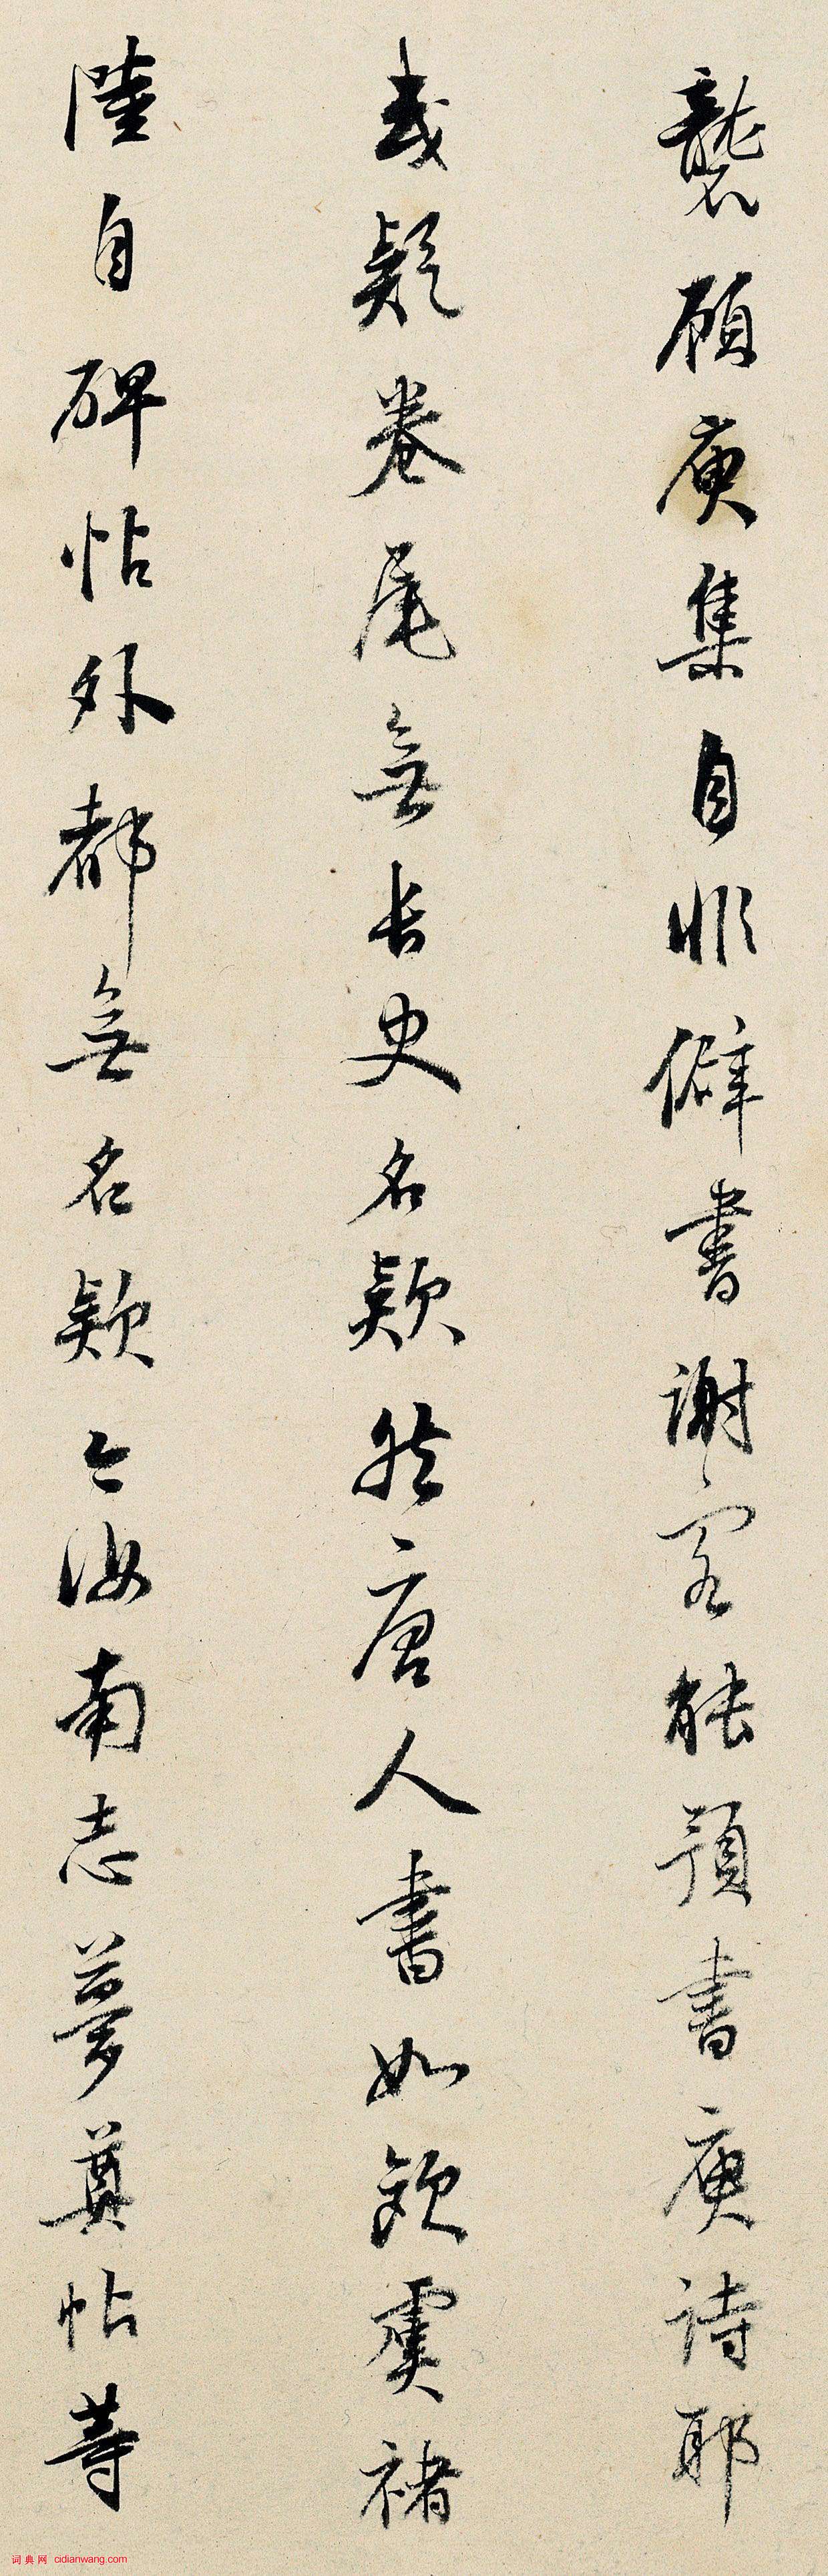 龔顧庾集自非僻書謝客能預書庾詩耶
或疑卷尾無長史名款然唐人書如歐虞褚
陸自碑帖外都無名款今汝南志夢奠帖等
词典网 cidianwang.com